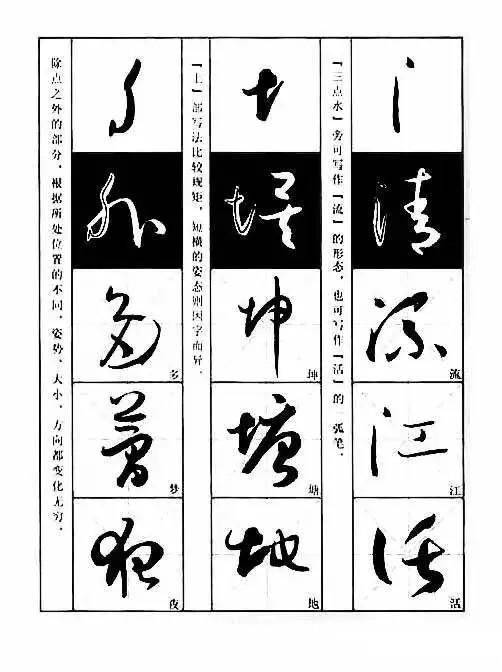 氵
清
流
流
江
江
活
活
「三点水」旁可写作「流」的形态，也可写作「活」的一弧笔。
土
坤
坤
塘
塘
地
地
「土」部写法比较规矩，短横的姿态则因字而异。
夕
外
多
多
梦
梦
夜
夜
除点之外的部分，根据所处位置的不同，姿势、大小、方向都变化无穷。